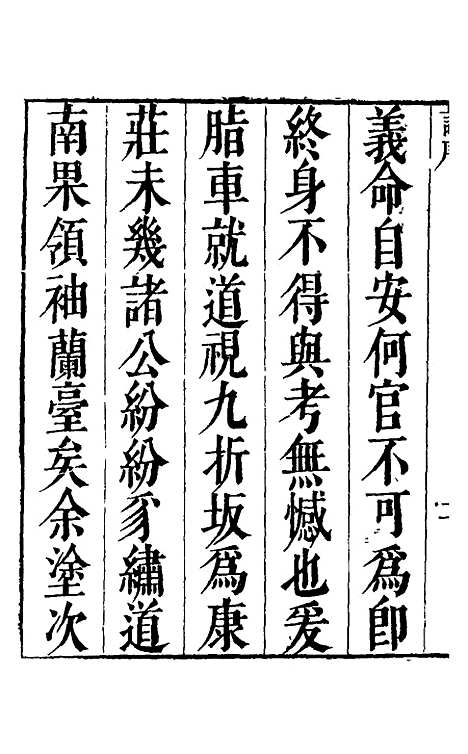 義命自安何官不可爲卽
終身不得與考無憾也爰
脂車就道視九折坂爲康
莊未幾諸公紛紛豸繡道
南果領袖蘭臺矣余塗次